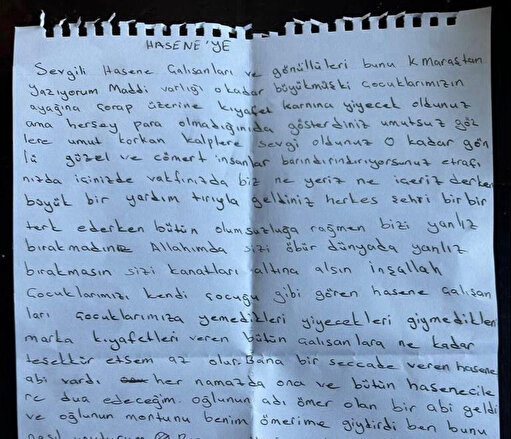 HASENE'YE
Sevgili Hasene Çalışanları ve gönüllüleri bunu K.Maraştan
yazıyorum Maddi varlığı o kadar büyükmüşki çocuklarımızın
ayağına çorap üzerine kıyafet karnına yiyecek oldunuz
ama herşey para olmadığınıda gösterdiniz umutsuz göz
lere umut korkan kalplere sevgi oldunuz O kadar gön
lü güzel ve cömert insanlar barındırındırıyorsunuz etrafı
nızda içinizde vakfınızda biz ne yeriz ne içeriz derken
böyük bir yardım tırıyla geldiniz herkes şehri bir bir
terk ederken bütün olumsuzluğa rağmen bizi yanlız
bırakmadınız Allahımda sizi öbür dünyada yanlız
bırakmasın sizi kanatları altına alsın inşallah
Çocuklarımızı kendi çocuğu gibi gören hasene çalışan
ları çocuklarımıza yemedikleri yiyecekleri giymedikleri
marka kıyafetleri veren bütün çalışanlara ne kadar
teşekkür etsem az olur. Bana bir seccade veren hasene
abi vardı her namazda ona ve bütün hasenecile
re dua edeceğim oğlunun adı ömer olan bir abi geldi
ve oğlunun montunu benim ömerime giydirdi ben bunu
nasıl